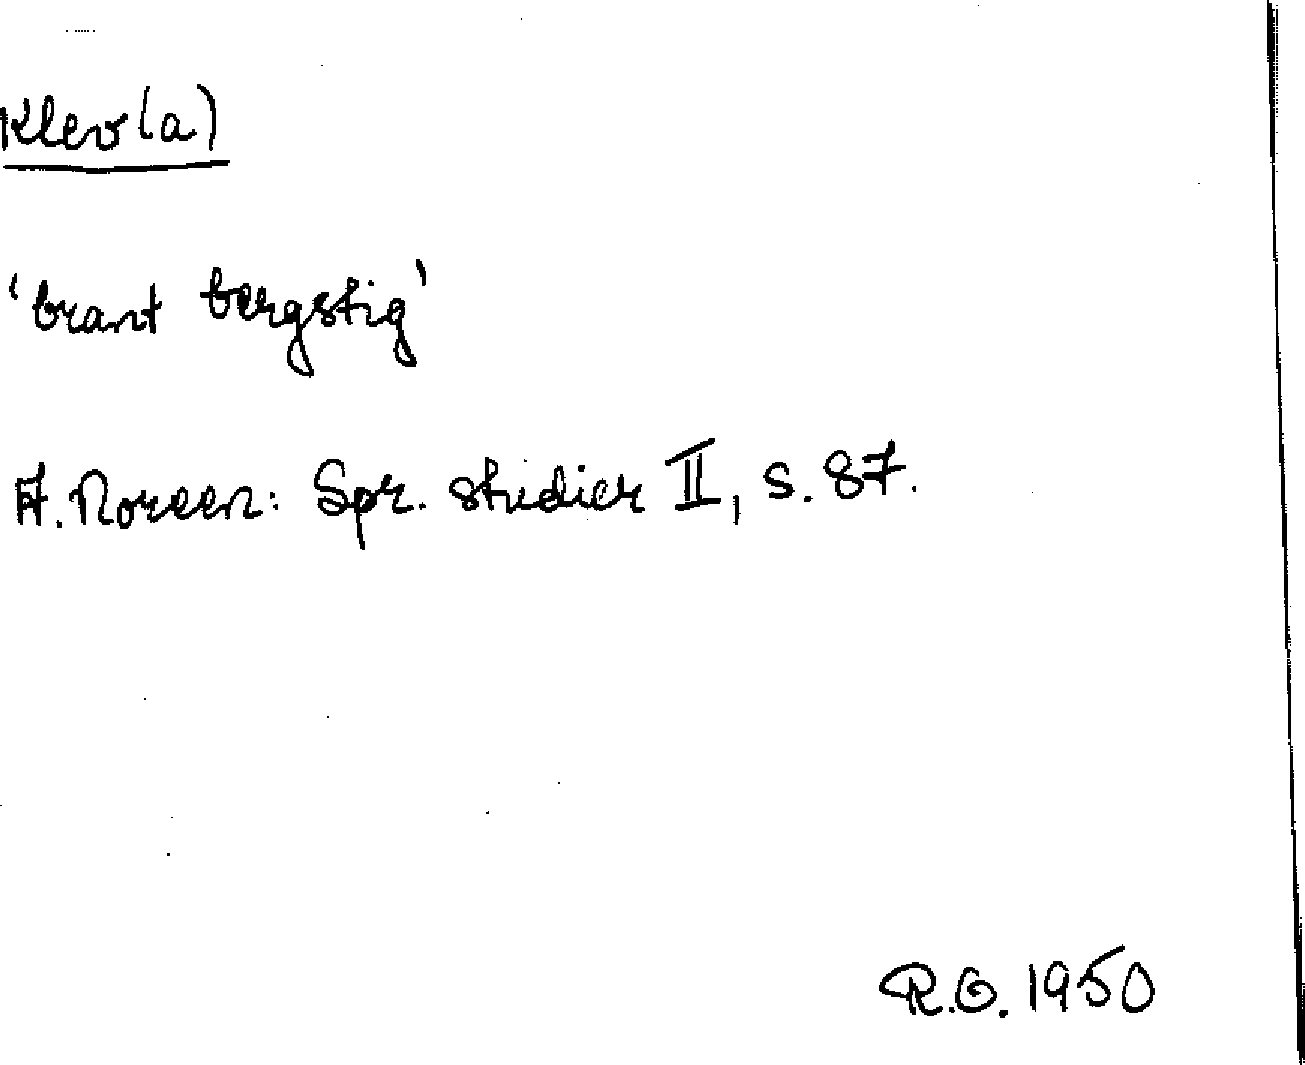 Klev(a)
'brant bergstig'
A. Noreen: Spr. studier II, s. 87.
R.O. 1950